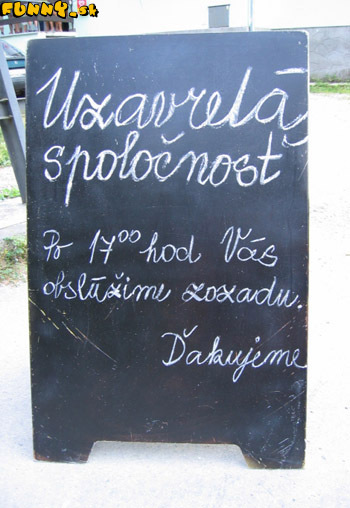 FUNNY.sk
Uzavretá
spoločnosť
Po 17⁰⁰ hod Vás
obslúžime zozadu.
Ďakujeme